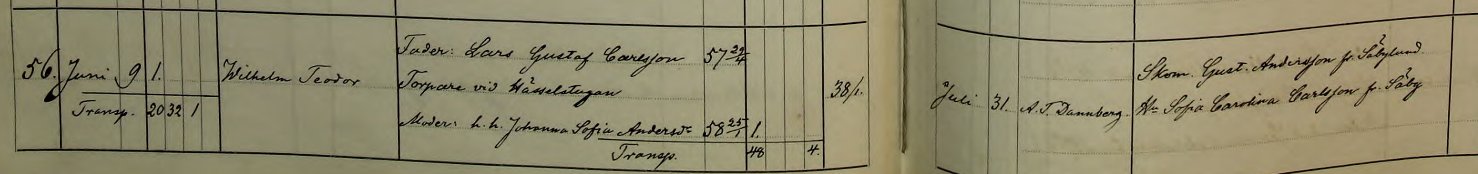 56. Juni 9 1. Wilhelm Teodor Fader: Lars Gustaf Carlsson 57 29/4
Torpare vid Hässelstugan 38/1.
Moder: h. h. Johanna Sofia Andersdr 58 25/1 1.
Transp. 20 32 1 Transp. 48 4.
Juli 31. A. T. Dannberg. Skom. Gust. Andersson fr. Säbylund.
Hn Sofia Carolina Carlsson fr. Säby